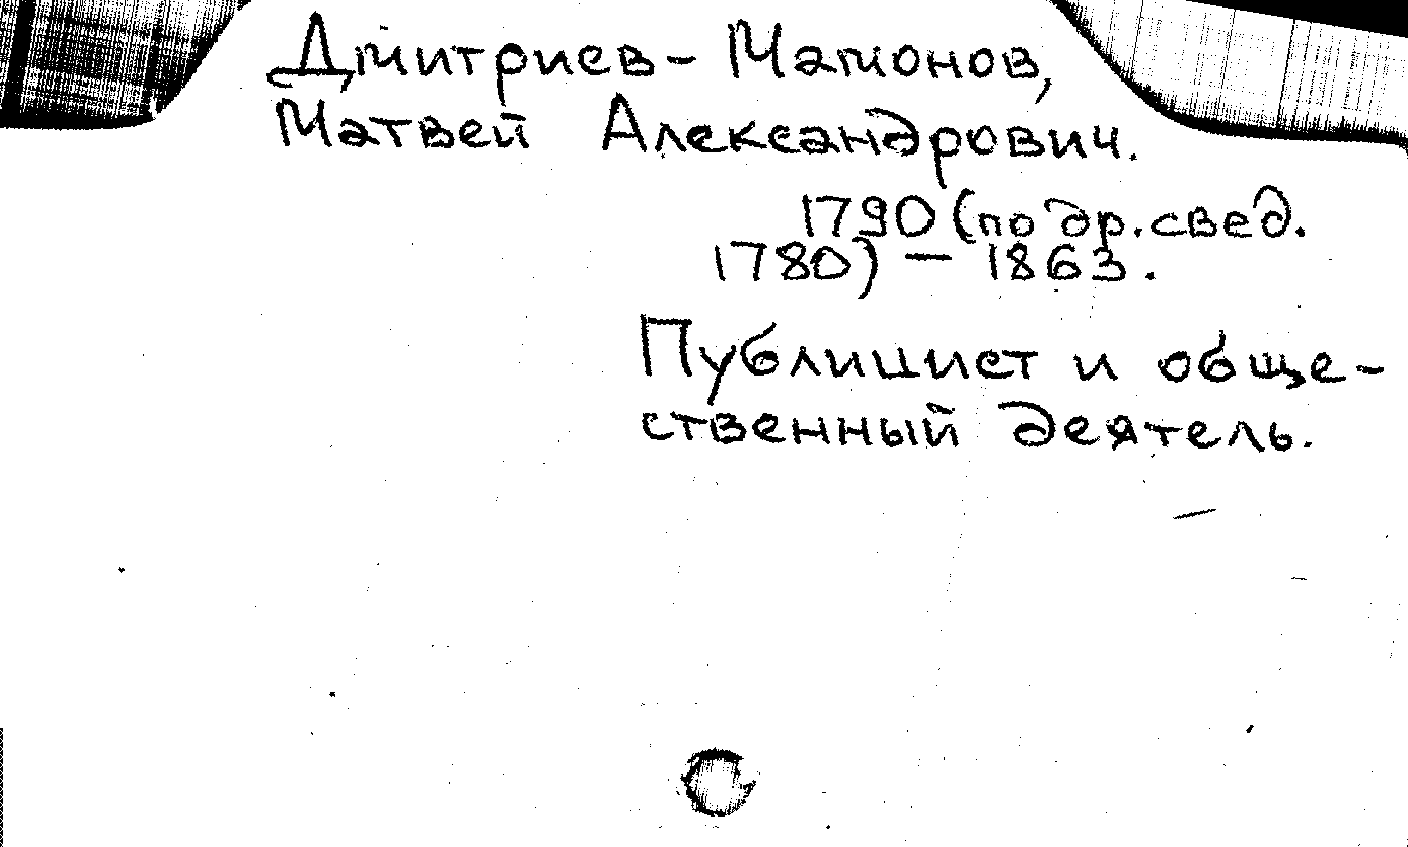 Дмитриев - Мамонов,
Матвей Александрович.
1790 (по др. свед.
1780) — 1863.
Публицист и обще-
ственный деятель.